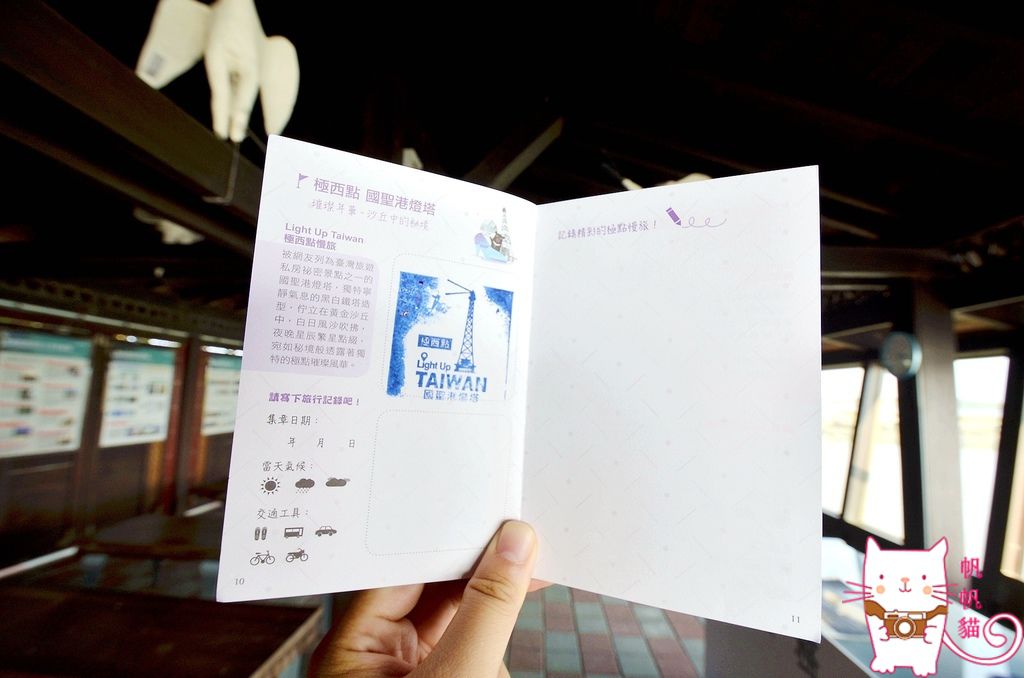 極西點 國聖港燈塔
璀璨年華-沙丘中的秘境
Light Up Taiwan
極西點慢旅
被網友列為臺灣旅遊
私房祕密景點之一的
國聖港燈塔，獨特寧
靜氣息的黑白鐵塔造
型，佇立在黃金沙丘
中，白日風沙吹拂，
夜晚星辰繁星點綴，
宛如秘境般透露著獨
特的極點璀璨風華。
極西點
Light Up
TAIWAN
國聖港燈塔
請寫下旅行記錄吧！
集章日期：
年 月 日
當天氣候：
交通工具：
10
記錄精彩的極點慢旅！
11
帆帆貓